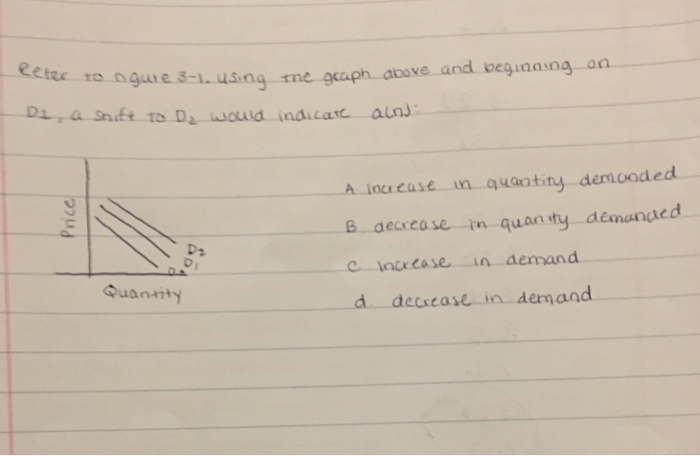 Refer to figure 3-1. Using the graph above and beginning on
D1, a shift to D2 would indicate a(n):
A increase in quantity demanded
B decrease in quanity demanded
C increase in demand
d. decrease in demand
Price
D2
D1
Quantity